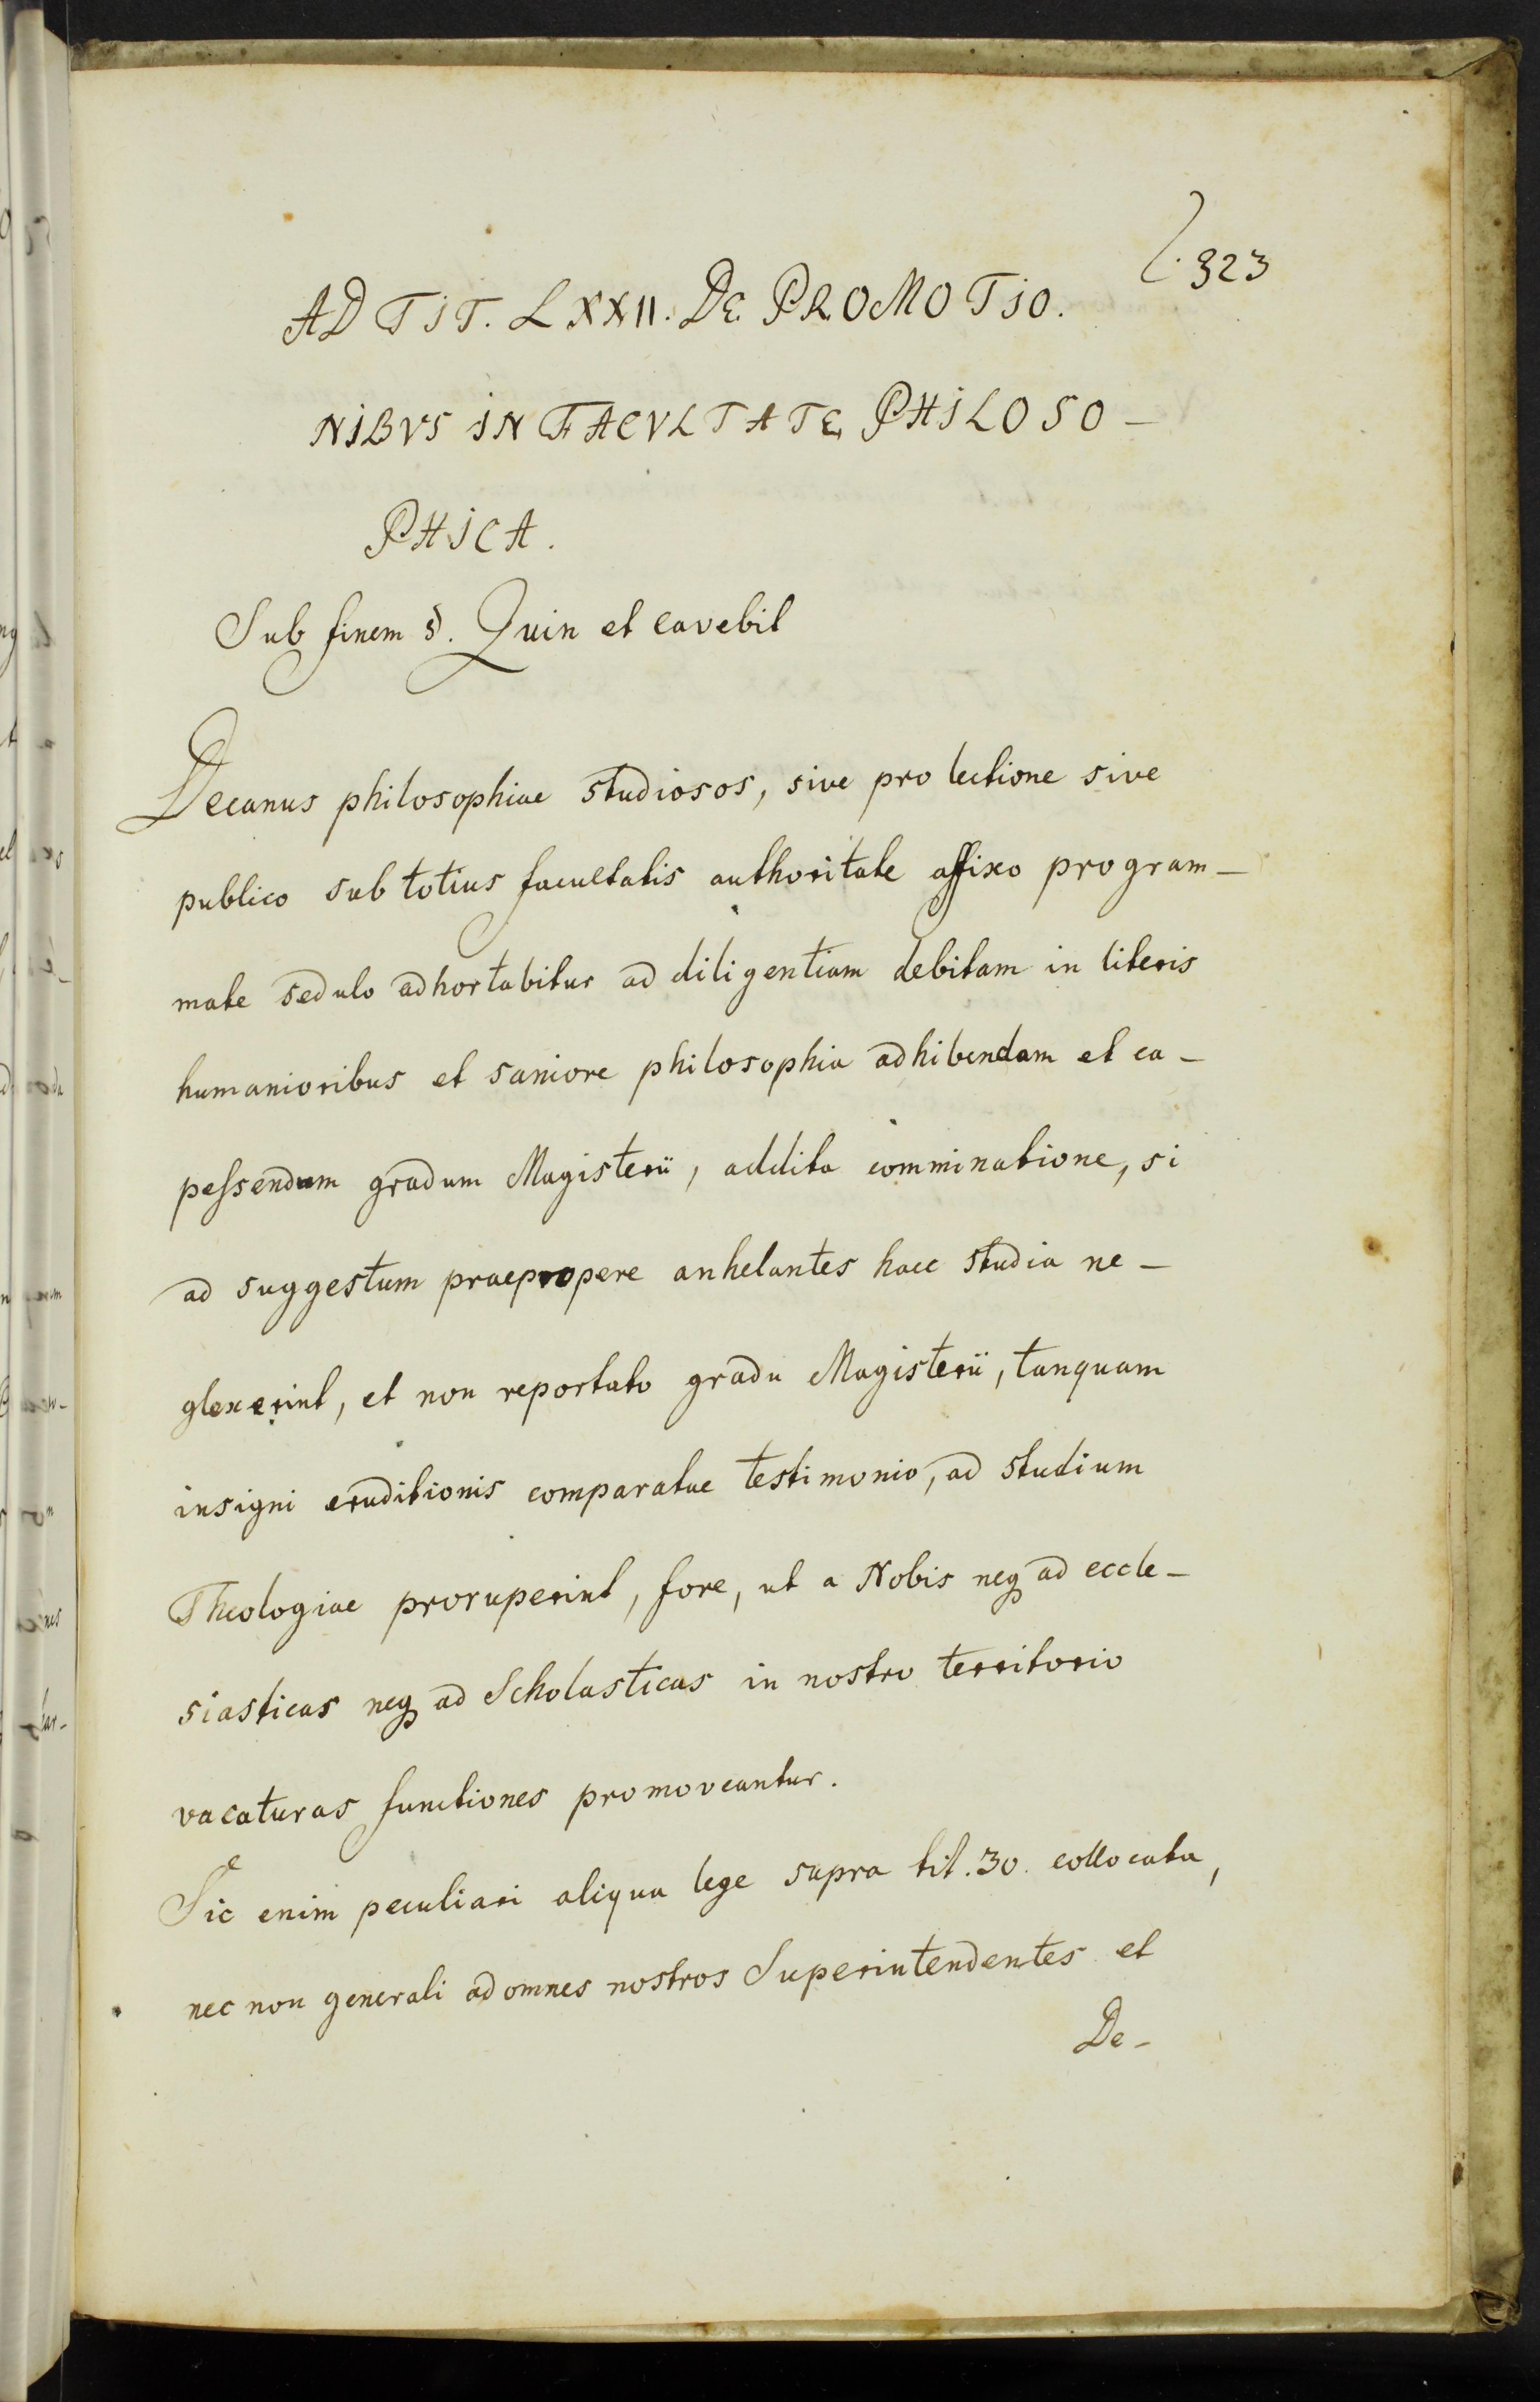 323
AD TIT. LXXII. DE PROMOTIO.
NIBVS IN FACVLTATE PHILOSO-
PHICA.
Sub finem §. Quin et cavebit
Decanus philosophiae studiosos, sive pro lectione sive
publico sub totius facultatis authoritate affixo program-
mate sedulo adhortabitur ad diligentiam debitam in literis
humanioribus et saniore philosophia adhibendam et ca-
pessendum gradum Magisterii, addita comminatione, si
ad suggestum praepropere anhelantes haec studia ne-
glexerint, et non reportato gradu Magisterii, tanquam
insigni eruditionis comparatae testimonio, ad studium
Theologiae proruperint, fore, ut a Nobis neq ad eccle-
siasticas neq ad Scholasticas in nostro territorio
vacaturas functiones promoveantur.
Sic enim peculiari aliqua lege supra tit. 30. collocata,
nec non generali ad omnes nostros Superintendentes et
De-